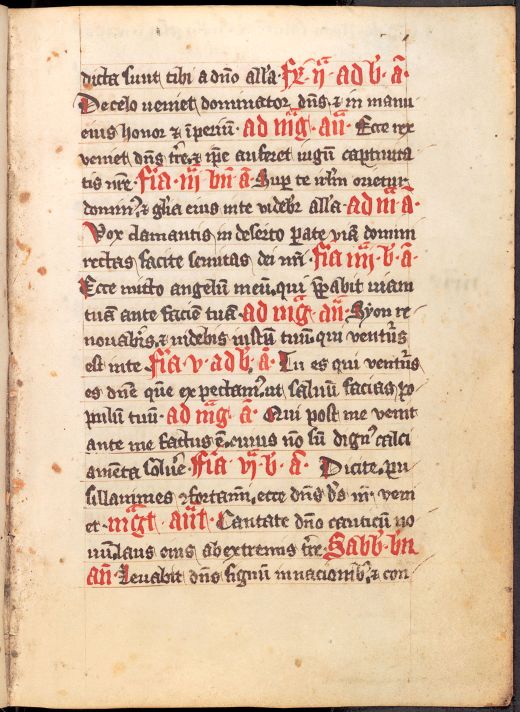 dicta sunt tibi a dño alľa · fẽ · ij · ad · b̃ · ã ·
De celo veniet dominator dñs & in manu
eius honor & iperiũ · ad mãg · añ · Ecce rex
veniet dñs tr̃e & ip̃e auferet iugũ captiuita
tis nr̃e · fia · iij · bñ ã · Sup te irľm orietur
domin⁹ & gľia eius in te videbr̃ alľa · ad m̃ ã ·
Vox clamantis in deserto pate viã domini
rectas facite semitas dei nr̃i · fia iiij · b · ã ·
Ecce mitto angelũ meũ, qui p̃pabit viam
tuã ante faciẽ tuã · ad mãg · añ · Syon re
nouab̃is, & videbis iustũ tuũ, qui ventur⁹
est in te · fia · v · ad b, ã · Tu es qui ventur⁹
es dñe quẽ expectam⁹, ut saluũ facias po
pulũ tuũ · ad mãg · ã · Qui post me venit
ante me factus ẽ, cuius nõ sũ dign⁹ calci
amẽta solũe · fia · vj · b · ã · Dicite, pu
sillanimes 9fortamĩ, ecce dñs ds nr̃ veni
et · mãgt · añt · Cantate dño canticũ no
uũ, laus eius ab extremis tr̃e · Sabb · bñ
añ · Leuabit dñs signũ in nacionib⁹, & con